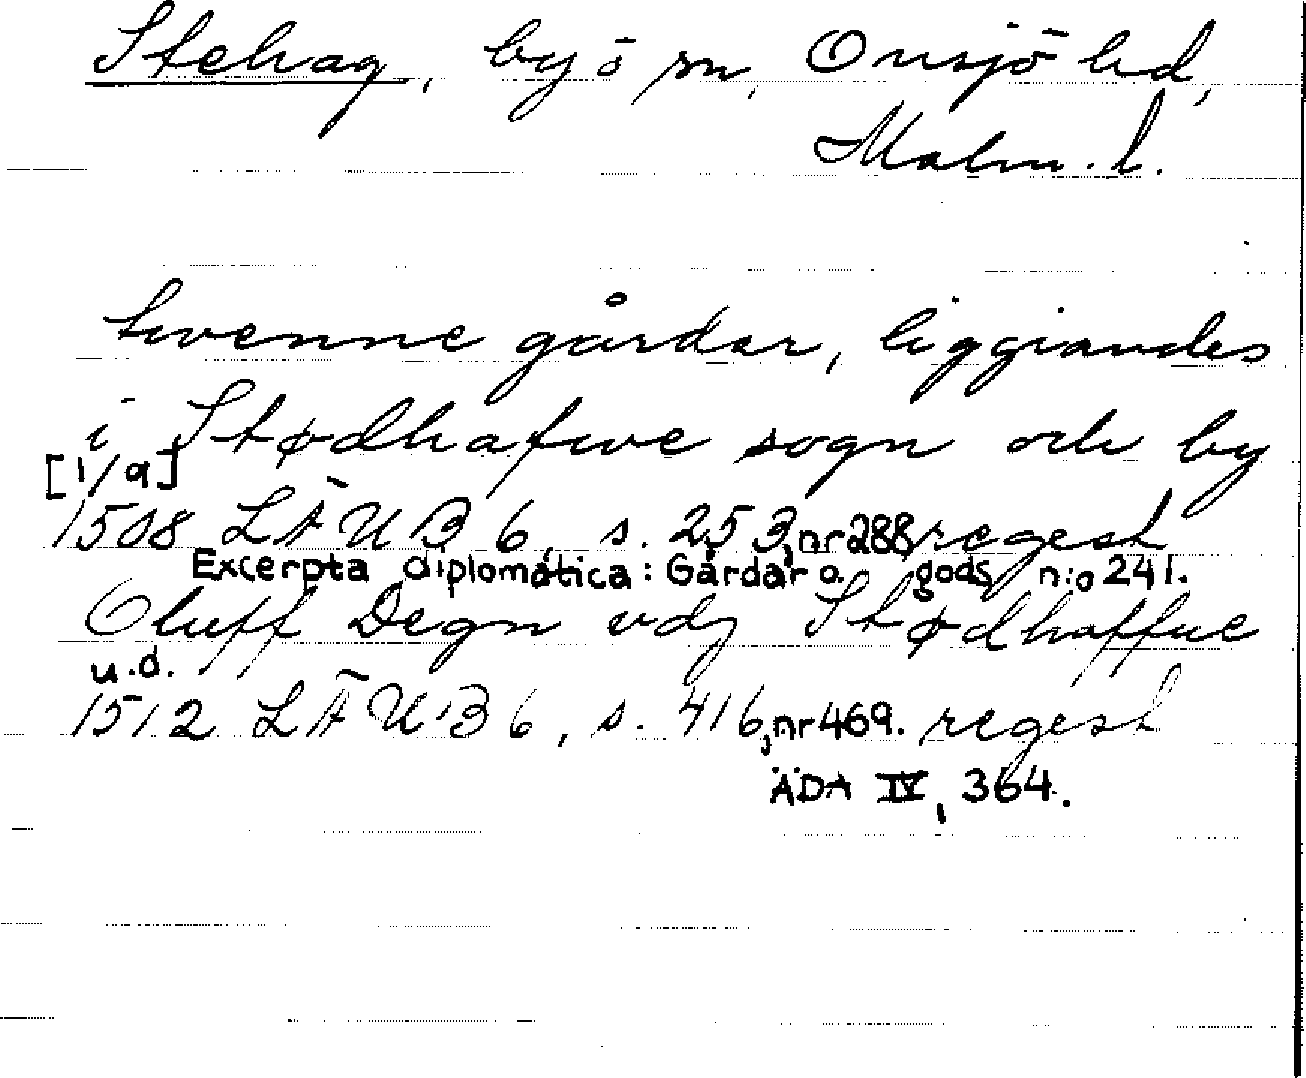 Stehag, by o sn, Onsjö hd,
Malm. l.
twenne gårdar, liggiandes
i Stødhafwe sogn och by
[1/9]
1508 LÄUB 6, s. 253, nr 288 regest
Excerpta diplomatica: Gårdar o. gods n:o 241.
Oluff Degn vdj Stødhaffue
u.d.
1512 LÄUB 6, s. 416, nr 469. regest
ÄDA IV, 364.